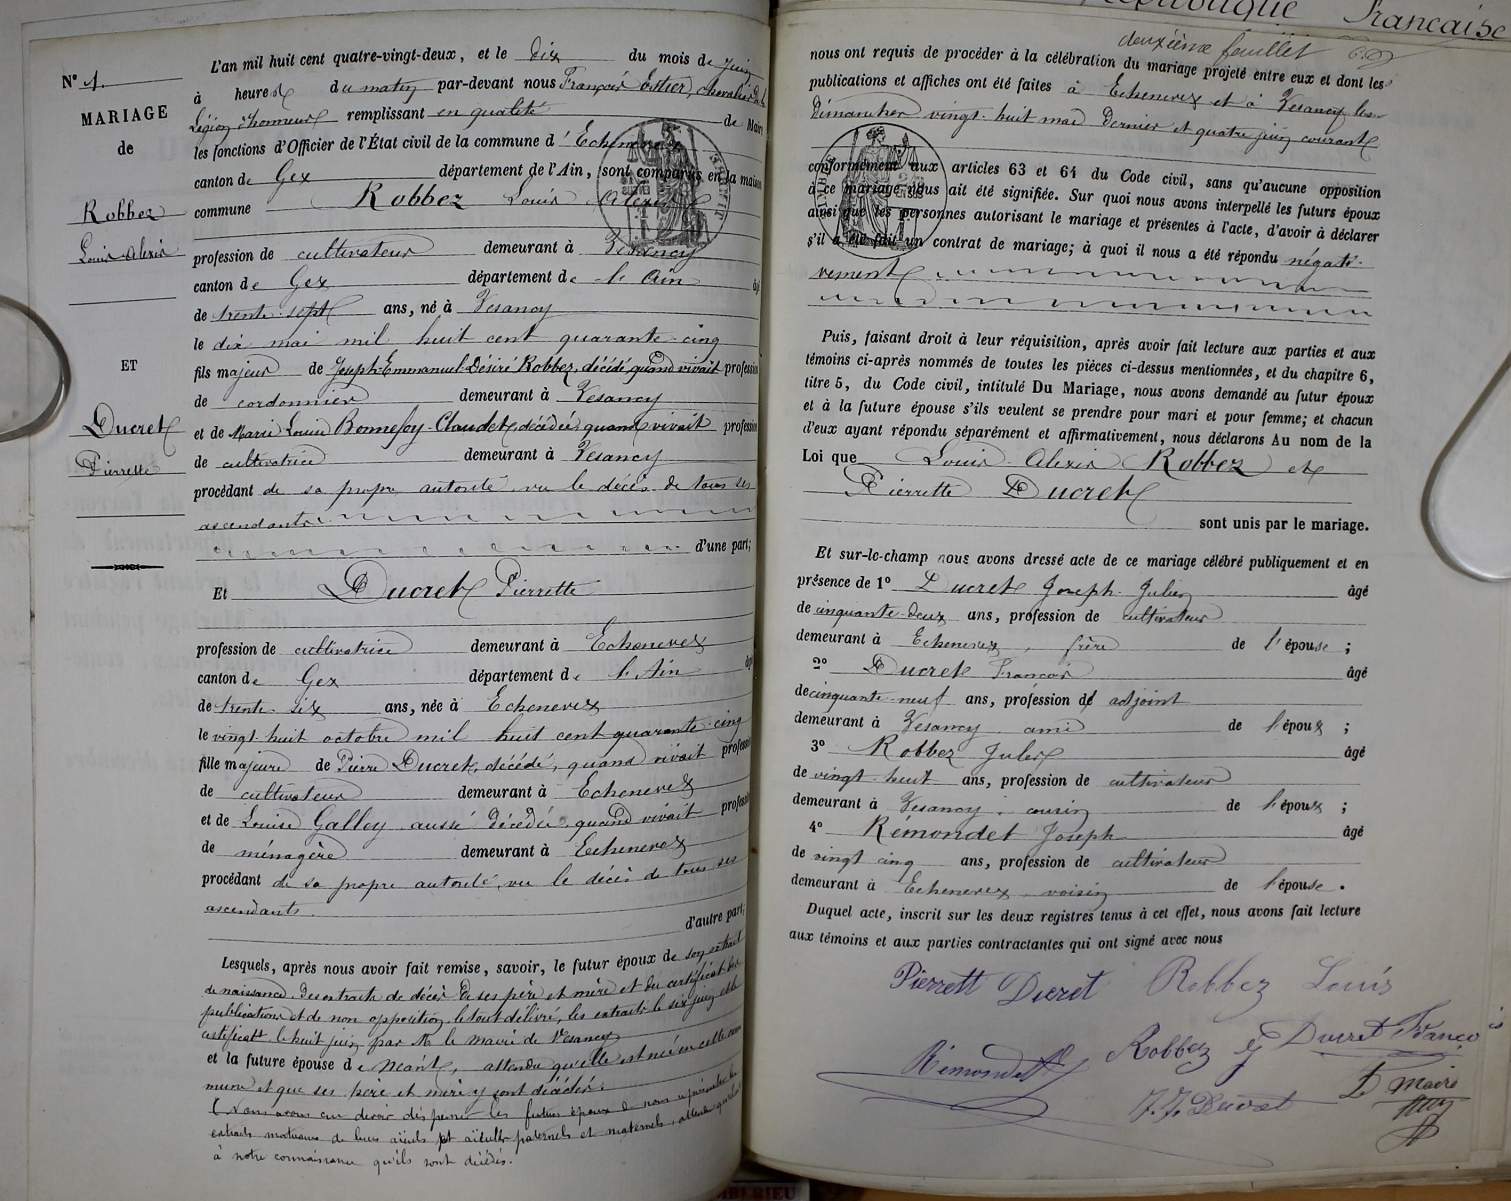 République Française
N° 1.
MARIAGE
de
Robbez
Louis Alexis
ET
Ducret
Pierrette
L'an mil huit cent quatre-vingt-deux, et le dix du mois de juin
à heures du matin par-devant nous François chevalier de la
Légion d'honneur remplissant en qualité de Maire
les fonctions d'Officier de l'État civil de la commune d'Echenevex
canton de Gex département de l'Ain, sont comparus en la maison
commune Robbez Louis Alexis
profession de cultivateur demeurant à Vesancy
canton de Gex département de l'Ain âgé
de trente-sept ans, né à Vesancy
le dix mai mil huit cent quarante-cinq
fils majeur de Joseph Emmanuel Désiré Robbez, décédé quand vivait profession
de cordonnier demeurant à Vesancy
et de Marie Louise Bonnefoy-Claudet, décédée quand vivait profession
de cultivatrice demeurant à Vesancy
procédant de sa propre autorité vu le décès de tous ses
ascendants
d'une part;
Et Ducret Pierrette
profession de cultivatrice demeurant à Echenevex
canton de Gex département de l'Ain âgé
de trente-six ans, née à Echenevex
le vingt-huit octobre mil huit cent quarante-cinq
fille majeure de Pierre Ducret, décédé, quand vivait profession
de cultivateur demeurant à Echenevex
et de Louise Galley aussi décédée quand vivait profession
de ménagère demeurant à Echenevex
procédant de sa propre autorité, vu le décès de tous ses
ascendants.
d'autre part;
Lesquels, après nous avoir fait remise, savoir, le futur époux de son extrait
de naissance, des extraits de décès de ses père et mère et du certificat de
publication et de non opposition, le tout délivré, les extraits le six juin et le
certificat le huit juin par Mr le maire de Vesancy
et la future épouse de Néant, attendu qu'elle est née en cette com
mune et que ses père et mère y sont décédés.
(Nous avons cru devoir dispenser les futurs époux de nous
extraits mortuaires de leurs aïeuls et aïeules paternels et maternels, attendu
à notre connaissance qu'ils sont décédés.
deuxième feuillet
nous ont requis de procéder à la célébration du mariage projeté entre eux et dont les
publications et affiches ont été faites à Echenevex et à Vesancy les
dimanches vingt-huit mai dernier et quatre juin courant
conformément aux articles 63 et 64 du Code civil, sans qu'aucune opposition
à ce mariage nous ait été signifiée. Sur quoi nous avons interpellé les futurs époux
ainsi que les personnes autorisant le mariage et présentes à l'acte, d'avoir à déclarer
s'il a été fait un contrat de mariage; à quoi il nous a été répondu négati-
vement
Puis, faisant droit à leur réquisition, après avoir fait lecture aux parties et aux
témoins ci-après nommés de toutes les pièces ci-dessus mentionnées, et du chapitre 6,
titre 5, du Code civil, intitulé Du Mariage, nous avons demandé au futur époux
et à la future épouse s'ils veulent se prendre pour mari et pour femme; et chacun
d'eux ayant répondu séparément et affirmativement, nous déclarons Au nom de la
Loi que Louis Alexis Robbez et
Pierrette Ducret
sont unis par le mariage.
Et sur-le-champ nous avons dressé acte de ce mariage célébré publiquement et en
présence de 1° Ducret Joseph Julien âgé
de cinquante-deux ans, profession de cultivateur
demeurant à Echenevex, frère de l'épouse;
2° Ducret François âgé
de cinquante-neuf ans, profession d' adjoint
demeurant à Vesancy ami de l'époux;
3° Robbez Jules âgé
de vingt-huit ans, profession de cultivateur
demeurant à Vesancy, cousin de l'époux;
4° Rémondet Joseph âgé
de vingt cinq ans, profession de cultivateur
demeurant à Echenevex voisin de l'épouse.
Duquel acte, inscrit sur les deux registres tenus à cet effet, nous avons fait lecture
aux témoins et aux parties contractantes qui ont signé avec nous
Pierrett Ducret Robbez Louis
Rémondet Robbez J Ducret François
J. J. Ducret Le maire